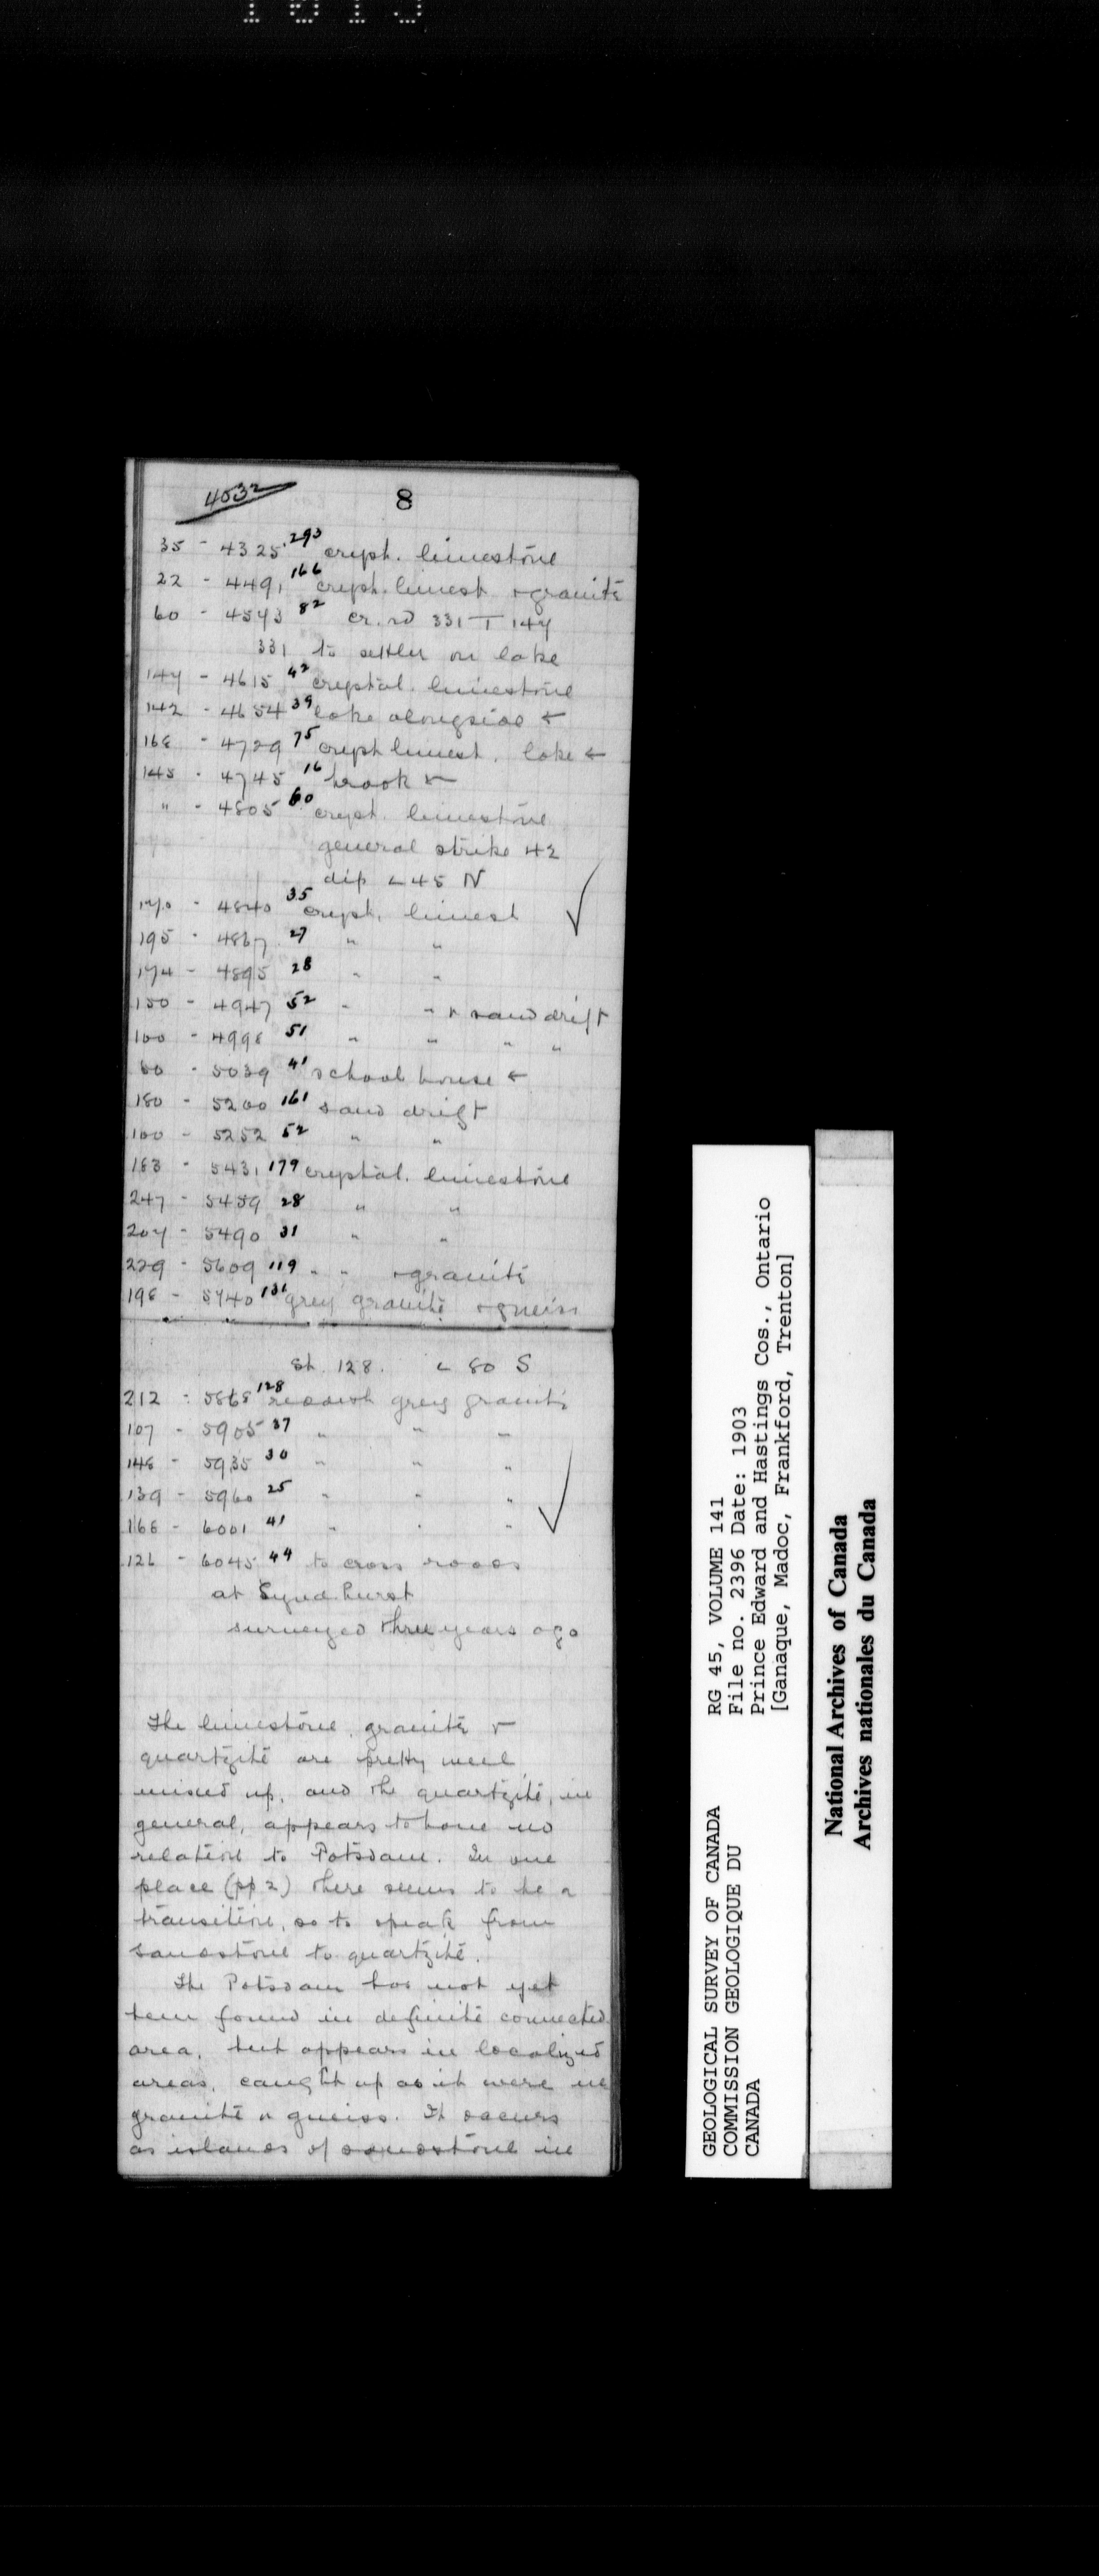 1015
4032
8
35 - 4325 293 cryst. limestone
22 - 4491 166 cryst. limest + granite
60 - 4573 82 cr. rd 331 T 147
331 to settler on lake
147 - 4615 42 crystal. limestone
142 - 4654 39 lake alongside ←
168 - 4729 75 cryst limest. lake ←
145 - 4745 16 brook ←
" - 4805 60 cryst. limestone
general strike 42
dip ∠ 45 N
170 - 4840 35 cryst. limest
195 - 4867 27 " "
174 - 4895 28 " "
150 - 4947 52 " " + sand drift
100 - 4998 51 " " " "
80 - 5039 41 school house ←
180 - 5200 161 sand drift
100 - 5252 52 " "
183 - 5431 179 crystal. limestone
247 - 5459 28 " "
207 - 5490 31 " "
229 - 5609 119 " " + granite
198 - 5740 131 grey granite + gneiss
St. 128. ∠ 80 S
212 - 5868 128 reddish grey granite
107 - 5905 37 " " "
146 - 5935 30 " " "
139 - 5960 25 " " "
168 - 6001 41 " " "
126 - 6045 44 to cross roads
at Lyndhurst
surveyed three years ago
The limestone, granite +
quartzite are pretty well
mixed up, and the quartzite, in
general, appears to have no
relation to Potsdam. In one
place (pp 2) there seems to be a
transition, so to speak from
sandstone to quartzite.
The Potsdam has not yet
been found in definite connected
area, but appears in localized
areas, caught up as it were in
granite or gneiss. It occurs
as islands of sandstone in
GEOLOGICAL SURVEY OF CANADA
COMMISSION GEOLOGIQUE DU
CANADA
RG 45, VOLUME 141
File no. 2396 Date: 1903
Prince Edward and Hastings Cos., Ontario
[Ganaque, Madoc, Frankford, Trenton]
National Archives of Canada
Archives nationales du Canada